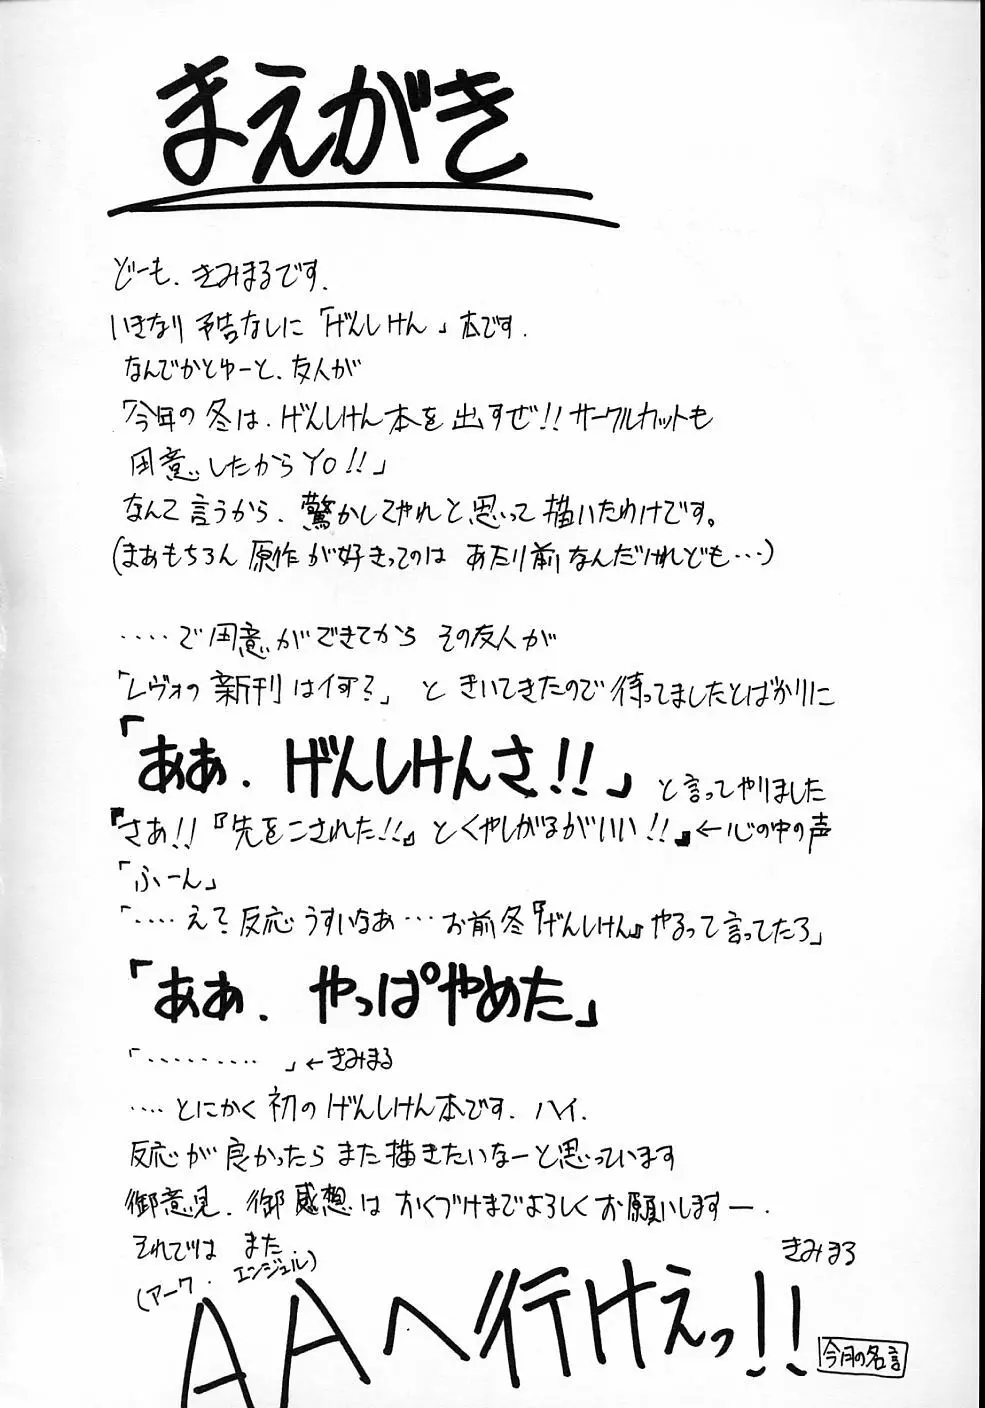 まえがき
どーも、きみまるです.
いきなり予告なしに「げんしけん」本です.
なんでかとゆーと、友人が
「今年の冬は、げんしけん本を出すぜ!!サークルカットも
用意したからYO!!」
なんて言うから、驚かしてやれと思って描いたわけです。
(まあもちろん原作が好きってのはあたり前なんだけれども…)
‥‥で用意ができてから その友人が
「レヴォの新刊は何?」ときいてきたので待ってましたとばかりに
「ああ、げんしけんさ!!」と言ってやりました
『さあ!!『先をこされた!!』とくやしがるがいい!!』←心の中の声
「ふーん」
「‥‥えて反応うすいなあ…お前冬『げんしけん』やるって言ってたろ」
「ああ、やっぱやめた」
「‥‥‥‥‥」←きみまる
‥‥とにかく初のげんしけん本です.ハイ.
反応が良かったらまた描きたいなーと思っています
御意見、御感想は かくづけまでよろしくお願いしますー.
それではまた
きみまる
(アーク・エンジェル)
AAへ行けえっ!!
今月の名言